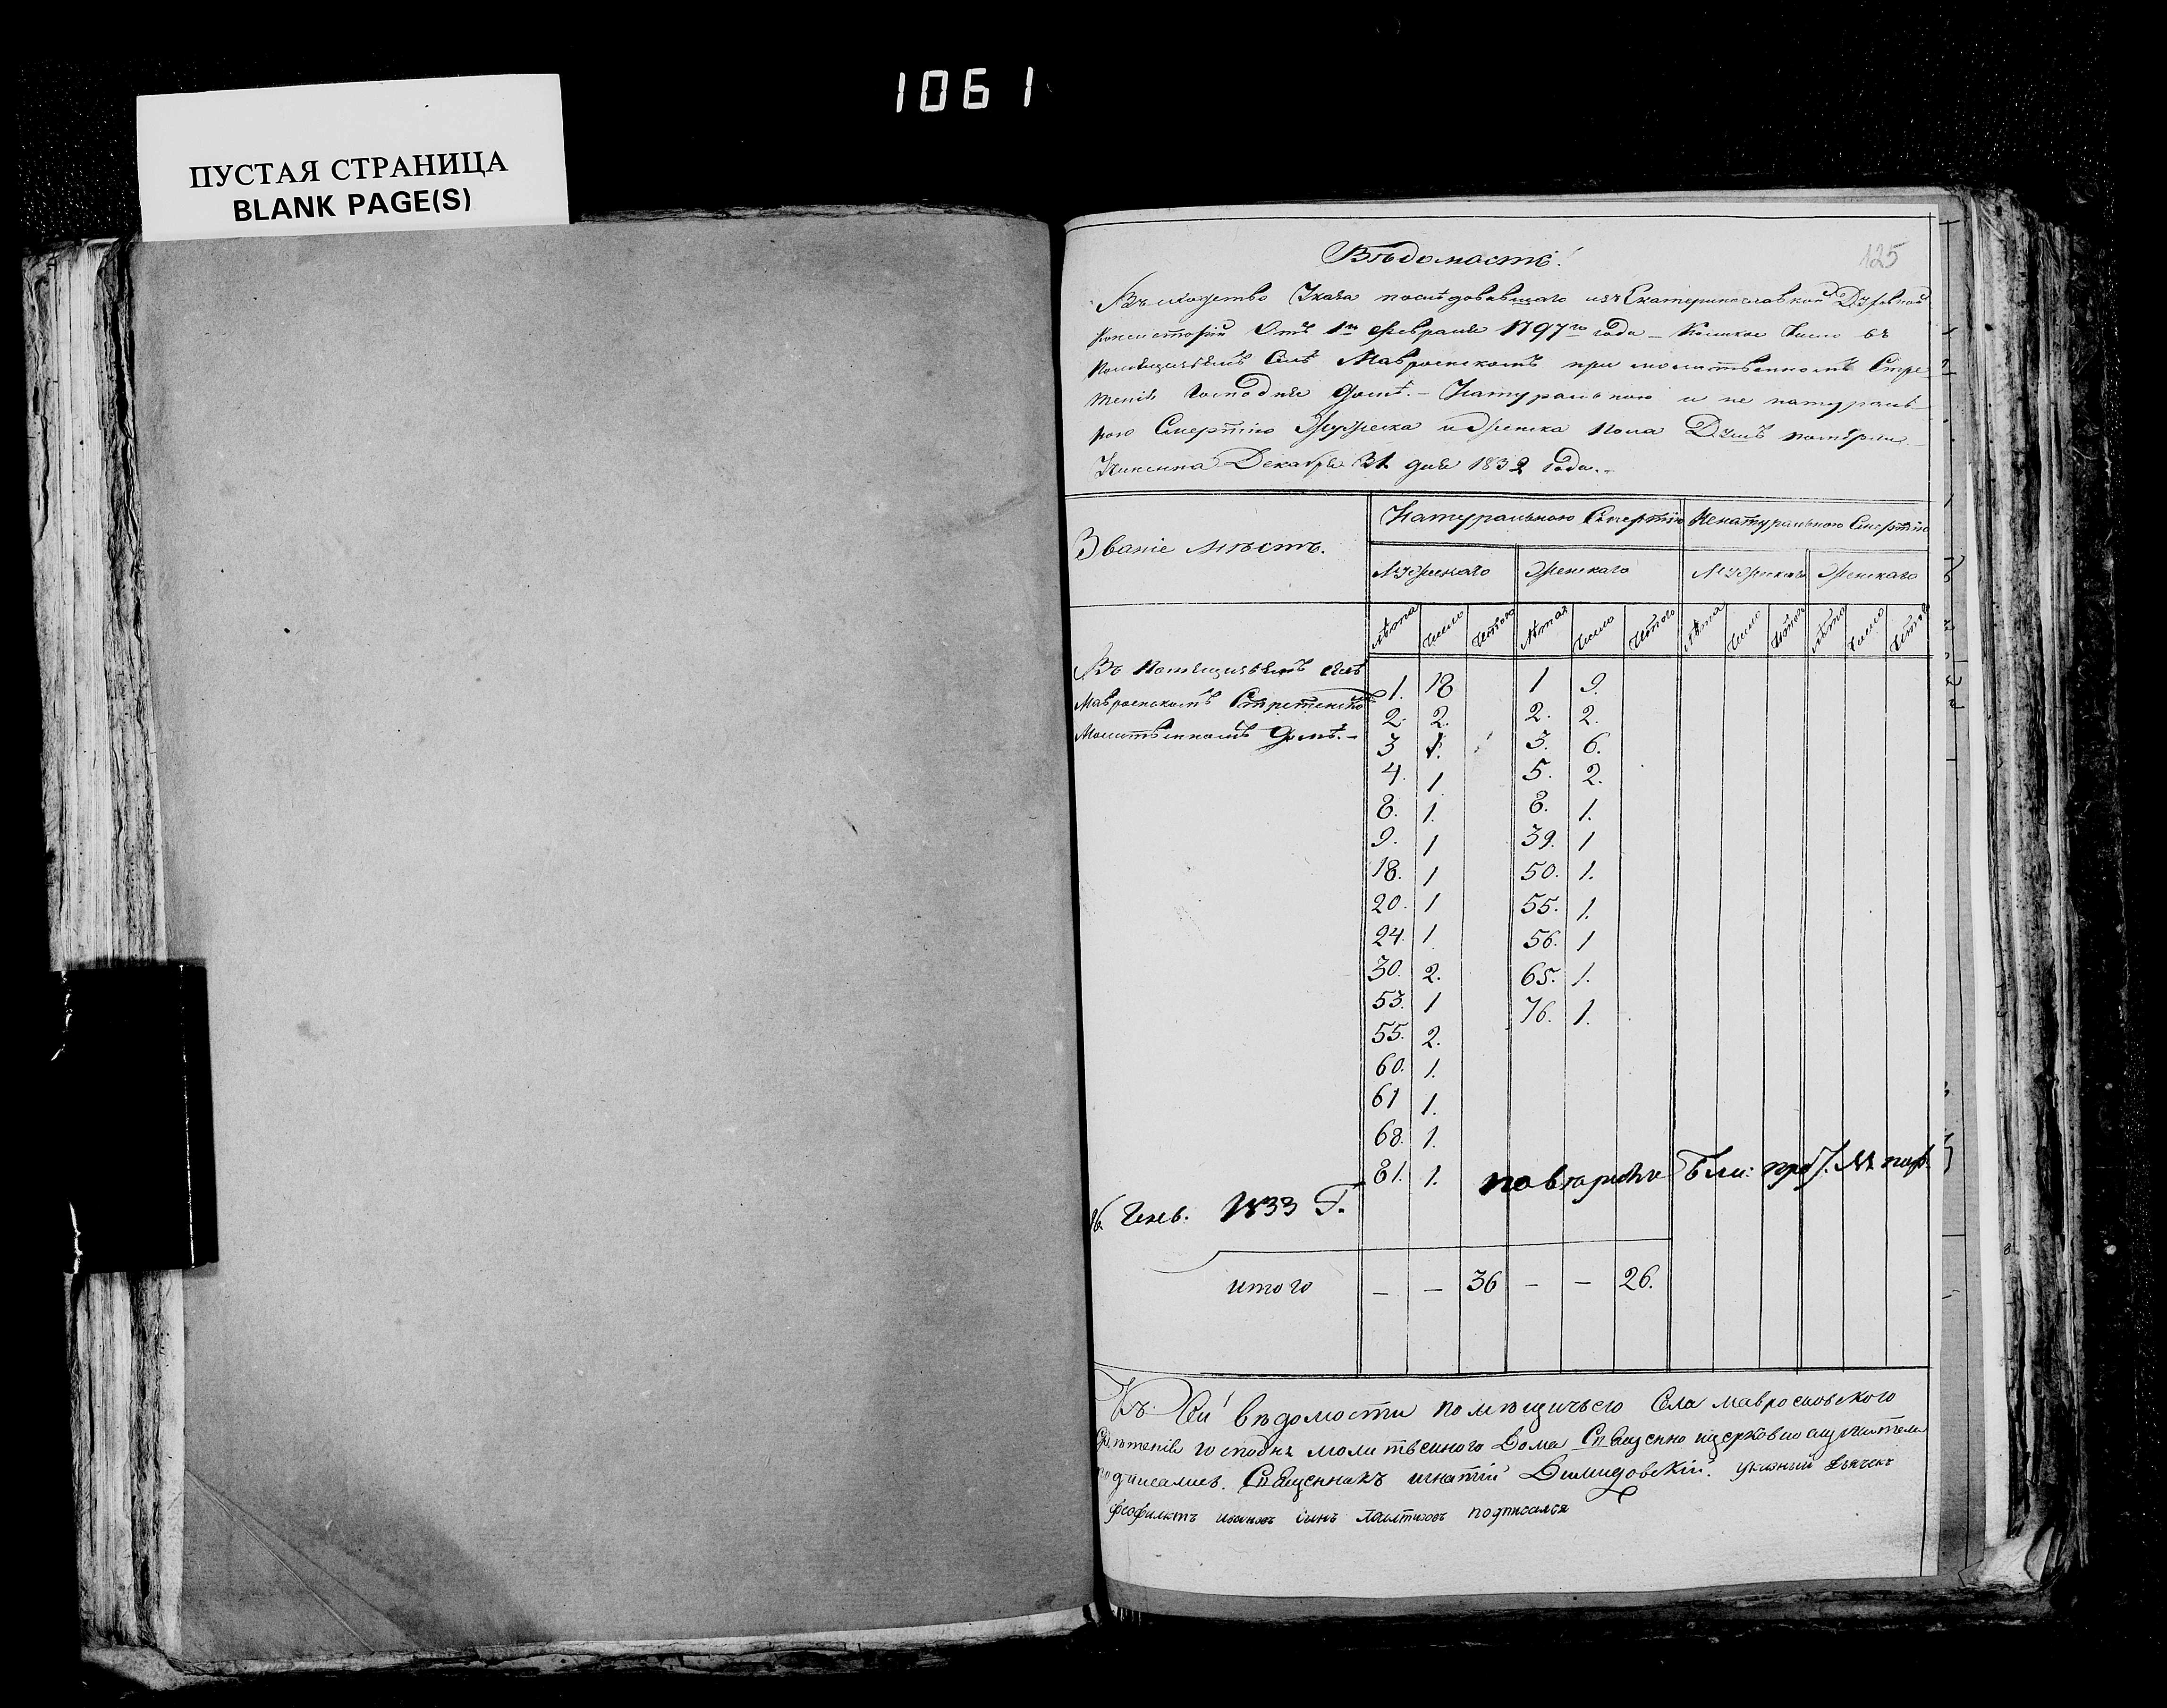 1061
ПУСТАЯ СТРАНИЦА
BLANK PAGE(S)
125
Вѣдомасть
Въ Указа последовавшаго изъ Екатеринославской Духовной
Консисторіи Отъ 1го Февраля 1797го года – Коликое Число въ
Помѣщичьемъ Селѣ Мавроенскомъ при молитвенномъ Стре
тенія Господня Домѣ. – Натуральною и не натураль
ною Смертію Мужеска и Женска Пола Душъ померли
Декабря 31 дня 1832 года. –
Званіе Мѣстъ.
Натуральною Смертію
Ненатуральною Смертію
Мужескаго
Женскаго
Мужескаго
Женскаго
лѣта Число Итого Лѣта Число Итого Лѣта Число Итого лѣта Число Итого
Въ Помѣщичьемъ селѣ
Мавроенскомъ Стретенско
Молитвенномъ Домѣ. –
1. 18 1 9.
2. 2. 2. 2.
3 1. 3. 6.
4. 1 5. 2.
8. 1. 8. 1.
9. 1 39. 1
18. 1 50. 1.
20. 1 55. 1.
24. 1 56. 1
30. 2. 65. 1.
53. 1 76. 1.
55. 2.
60. 1.
61 1.
68. 1.
81. 1.
16 Генв. 1833 Г.
итого – – 36 – – 26.
Къ Сей вѣдомости помѣщичьего Села мавроеновского
Стретенія господня молитвенного Дома Священно ицерковно служители
подписались. Священникъ игнатій указный дьячекъ
феофилактъ ивановъ сынъ подписался